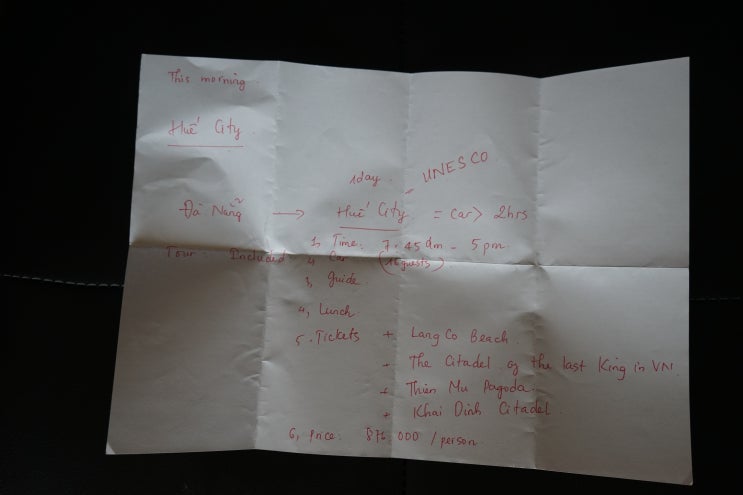 This morning
Huế City
1day - UNESCO
Đà Nẵng → Huế City = Car > 2hrs
1, Time: 7.45 am - 5 pm
Tour: Included: Car (16 guests).
3, Guide
4, Lunch
5. Tickets + Lang Co Beach.
+ The Citadel of the last King in VN.
+ Thien Mu Pagoda.
+ Khai Dinh Citadel.
6, Price: 000 / person.